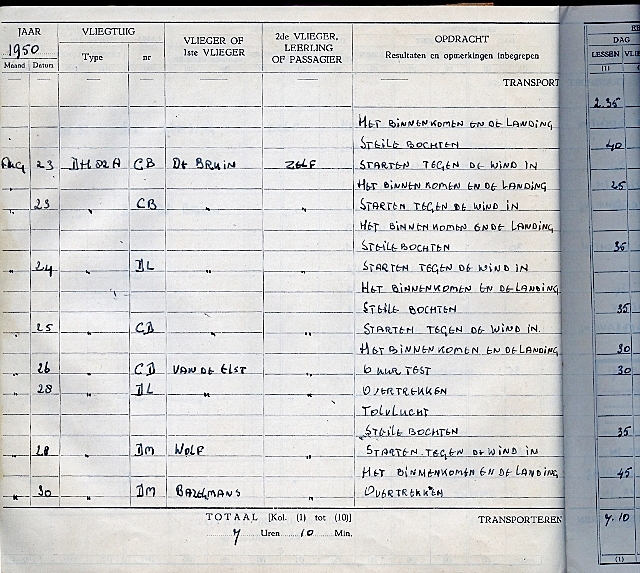 JAAR VLIEGTUIG VLIEGER OF 1STE VLIEGER 2de VLIEGER, LEERLING OF PASSAGIER OPDRACHT DAG
1950 Type nr Resultaten en opmerkingen inbegrepen LESSEN
Maand Datum (1)
TRANSPORT 2.35
HET BINNENKOMEN EN DE LANDING
STEILE BOCHTEN 40
Aug 23 DH 82A CB DE BRUIN ZELF STARTEN TEGEN DE WIND IN
HET BINNENKOMEN EN DE LANDING 25
" 23 " CB " " STARTEN TEGEN DE WIND IN
HET BINNENKOMEN EN DE LANDING
STEILE BOCHTEN 35
" 24 " DL " " STARTEN TEGEN DE WIND IN
HET BINNENKOMEN EN DE LANDING
STEILE BOCHTEN 35
" 25 " CD " " STARTEN TEGEN DE WIND IN
HET BINNENKOMEN EN DE LANDING 30
" 26 " CD VAN DE ELST " 6 UUR TEST 30
" 28 " DL " " OVERTREKKEN
TOLVLUCHT
STEILE BOCHTEN 35
" 28 " DM WOLF " STARTEN TEGEN DE WIND IN
HET BINNENKOMEN EN DE LANDING 45
" 30 " DM " OVERTREKKEN
TOTAAL [Kol. (1) tot (10)] TRANSPORTEREN 7.10
7 Uren 10 Min.
(1)